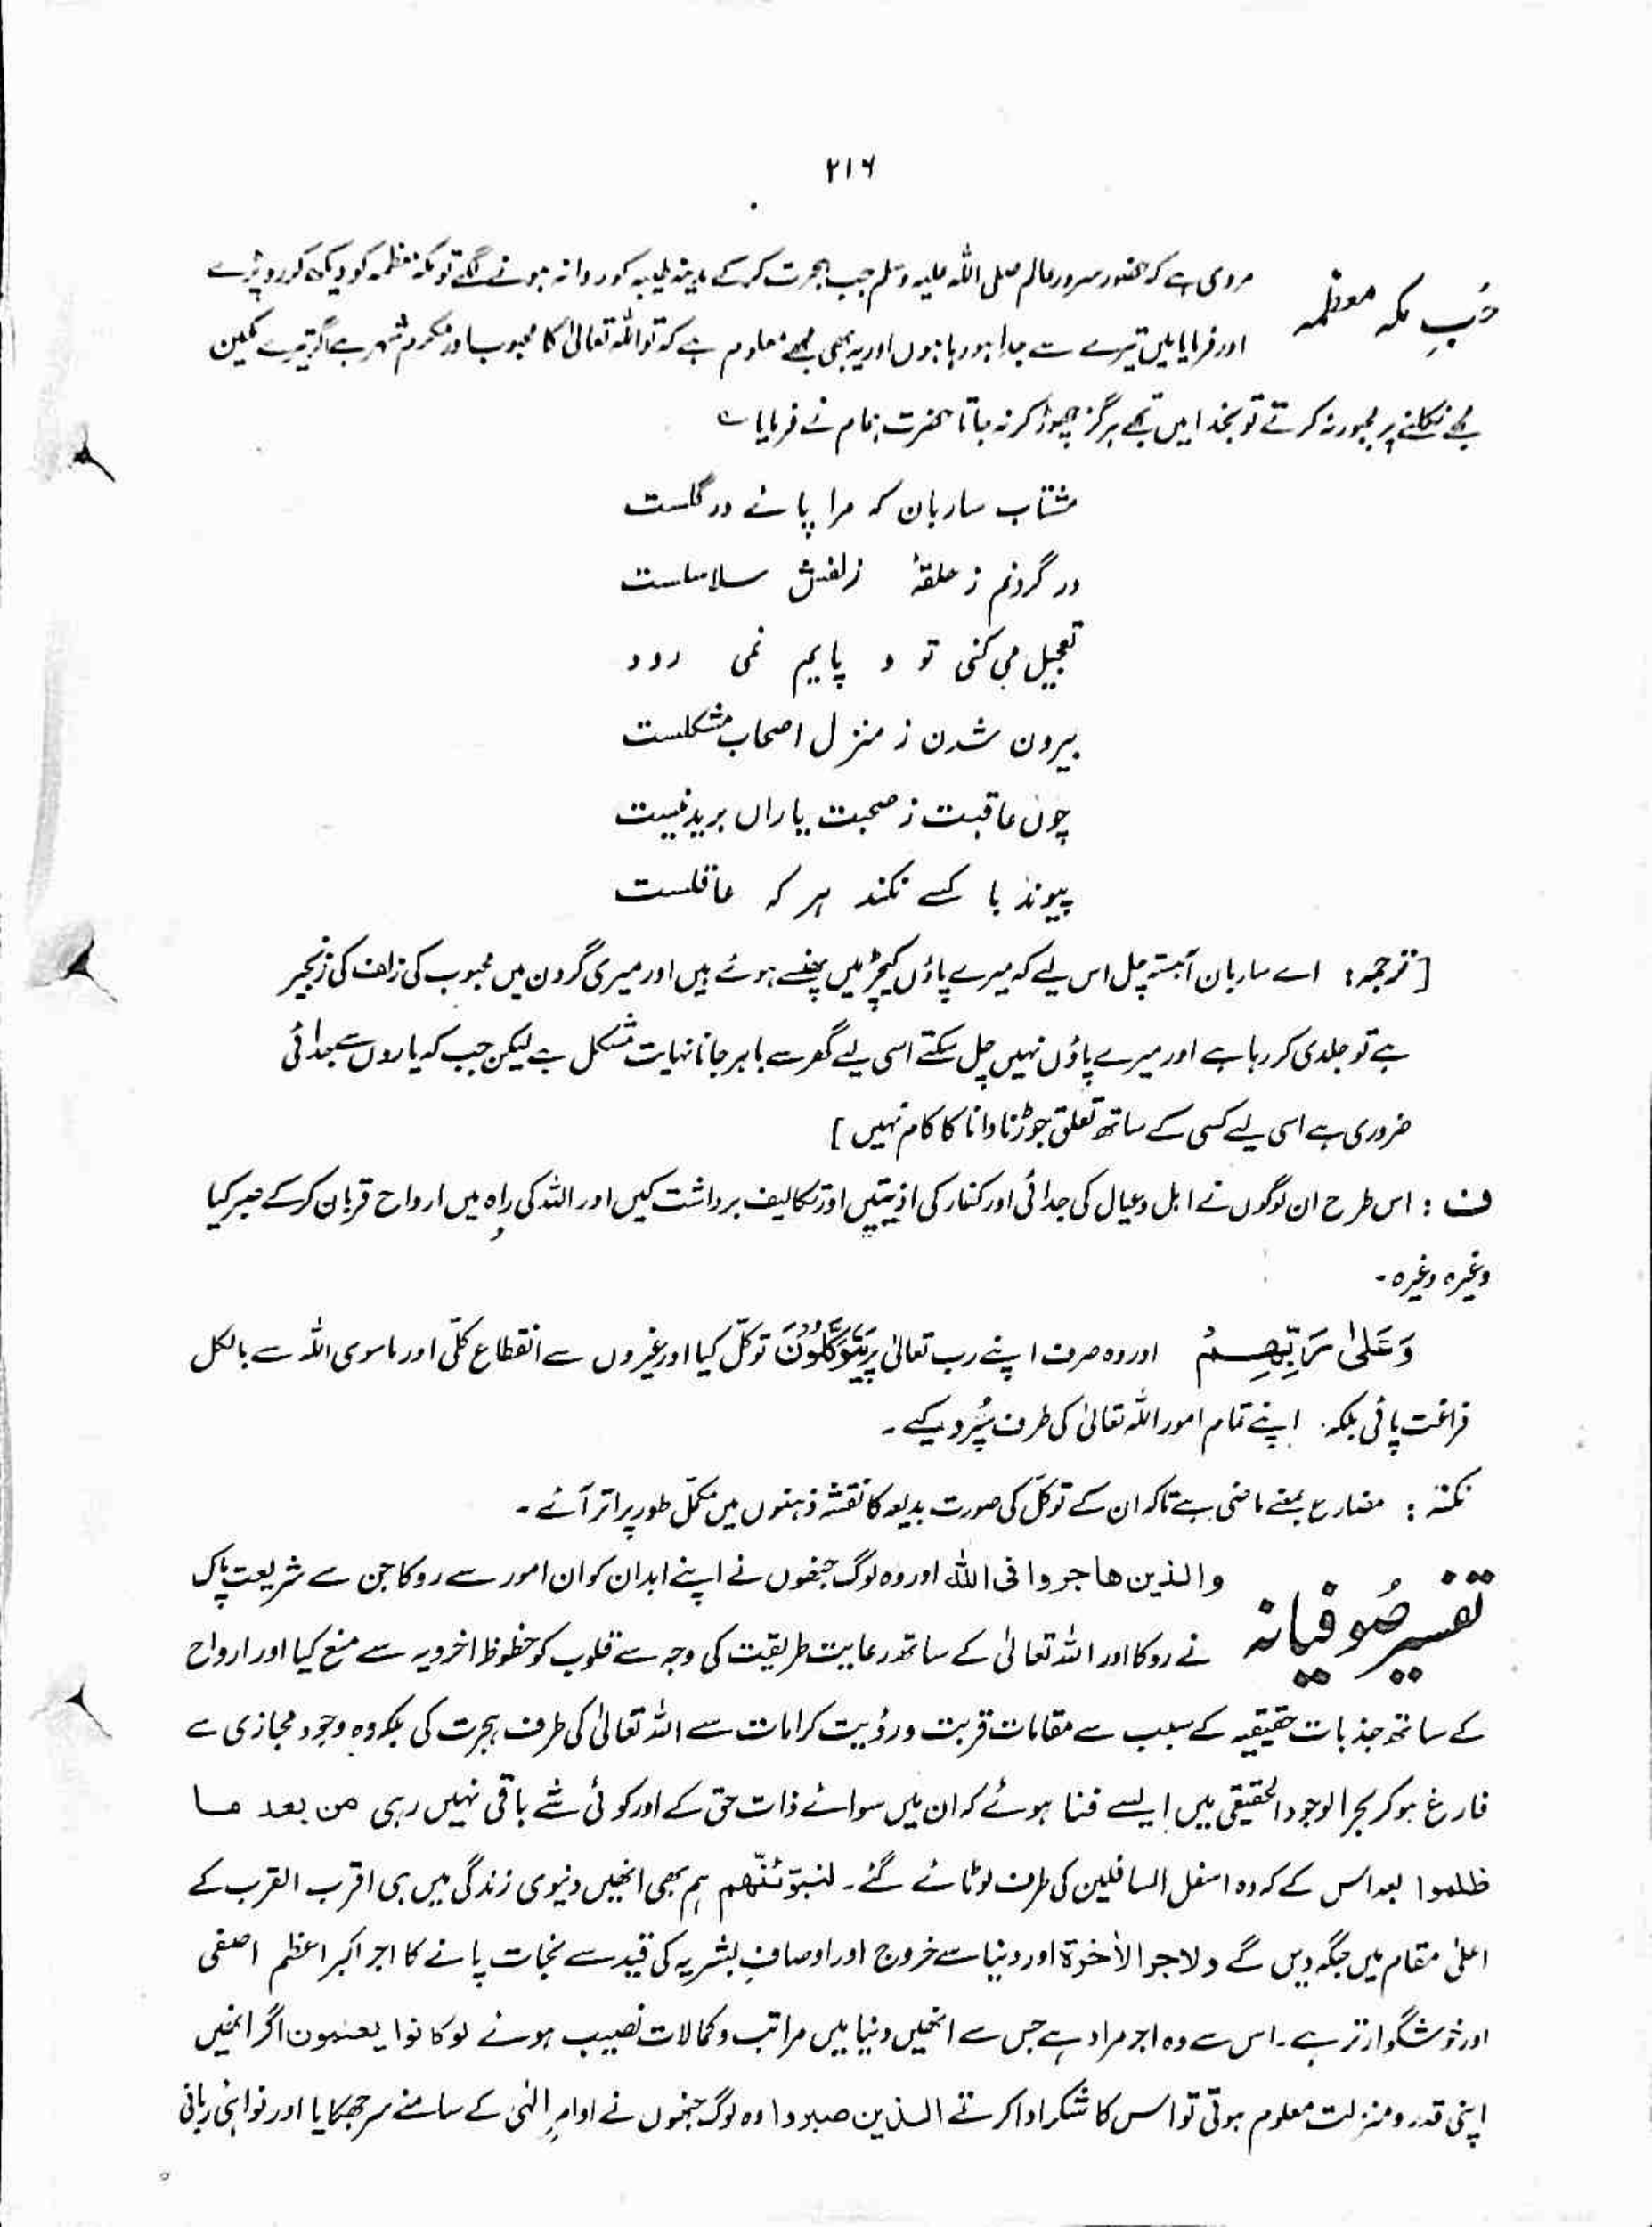 ۲۱۶
حُبِ مکہ معظمہ
مروی ہے کہ حضور سرور عالم صلی اللہ علیہ وسلم جب ہجرت کرکے مدینہ طیبہ کو روانہ ہونے لگے تو مکہ معظمہ کو دیکھ کر رو پڑے
اور فرمایا میں تیرے سے جدا ہو رہا ہوں اور یہ بھی مجھے معلوم ہے کہ تو اللہ تعالیٰ کا محبوب اور مکرم شہر ہے اگر تیرے مکین
مجھے نکلنے پر مجبور نہ کرتے تو بخدا میں تجھے ہرگز چھوڑ کر نہ جاتا حضرت ہمام نے فرمایا ؎
مشتاب ساربان کہ مرا پائے در گلست
در گردنم ز حلقۂ زلفش سلاسلست
تعجیل می کنی تو و پایم نمی رود
بیرون شدن ز منزل اصحاب مشکلست
چوں عاقبت ز صحبت یاراں بریدنیست
پیوند با کسے نکند ہر کہ عاقلست
[ ترجمہ: اے ساربان آہستہ چل اس لیے کہ میرے پاؤں کیچڑ میں پھنسے ہوئے ہیں اور میری گردن میں محبوب کی زلف کی زنجیر
ہے تو جلدی کر رہا ہے اور میرے پاؤں نہیں چل سکتے اسی لیے گھر سے باہر جانا نہایت مشکل ہے لیکن جب کہ یاروں سے جدائی
ضروری ہے اسی لیے کسی کے ساتھ تعلق جوڑنا دانا کا کام نہیں ]
ف : اس طرح ان لوگوں نے اہل و عیال کی جدائی اور کفار کی اذیتیں اور تکالیف برداشت کیں اور اللہ کی راہ میں ارواح قربان کرکے صبر کیا
وغیرہ وغیرہ ۔
وَعَلٰی رَبِّهِمْ اور وہ صرف اپنے رب تعالیٰ پر يَتَوَكَّلُوْنَ توکّل کیا اور غیروں سے انقطاع کلّی اور ماسوی اللہ سے بالکل
فراغت پائی بلکہ اپنے تمام امور اللہ تعالیٰ کی طرف سُپرد کیے ۔
نکتہ : مضارع بمعنے ماضی ہے تاکہ ان کے توکّل کی صورت بدیعہ کا نقشہ ذہنوں میں مکمّل طور پر اتر آئے ۔
تفسیر صُوفیانہ
والذین ھاجروا فی اللہ اور وہ لوگ جنھوں نے اپنے ابدان کو ان امور سے روکا جن سے شریعت پاک
نے روکا اور اللہ تعالیٰ کے ساتھ رعایت طریقیت کی وجہ سے قلوب کو حظوظ اخرویہ سے منع کیا اور ارواح
کے ساتھ جذبات حقیقیہ کے سبب سے مقامات قربت ورؤیت کرامات سے اللہ تعالیٰ کی طرف ہجرت کی بلکہ وہ وجود مجازی سے
فارغ ہو کر بحر الوجود الحقیقی میں ایسے فنا ہوئے کہ ان میں سوائے ذات حق کے اور کوئی شے باقی نہیں رہی من بعد ما
ظلموا بعد اس کے کہ وہ اسفل السافلین کی طرف لوٹائے گئے۔ لنبوّئنّھم ہم بھی انھیں دنیوی زندگی میں ہی اقرب القرب کے
اعلیٰ مقام میں جگہ دیں گے ولاجر الاٰخرة اور دنیا سے خروج اور اوصافِ بشریہ کی قید سے نجات پانے کا اجر اکبر اعظم اصفی
اور خوشگوار تر ہے۔ اس سے وہ اجر مراد ہے جس سے انھیں دنیا میں مراتب و کمالات نصیب ہوئے لو کانوا یعلمون اگر انھیں
اپنی قدر و منزلت معلوم ہوتی تو اس کا شکر ادا کرتے الذین صبروا وہ لوگ جنھوں نے اوامرِ الٰہی کے سامنے سر جھکایا اور نواہیٔ ربانی